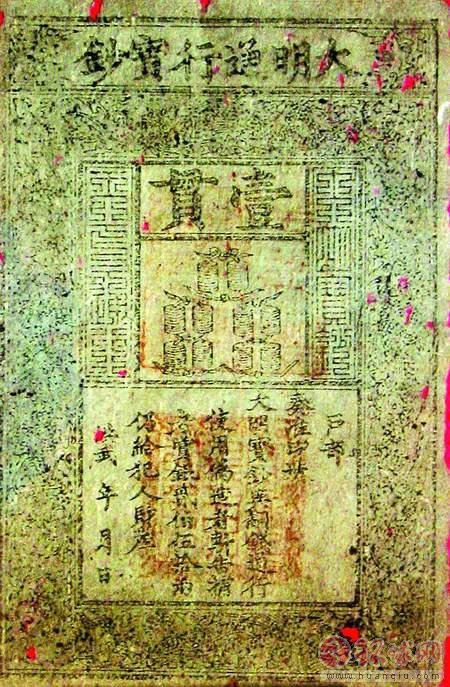 大明通行寶鈔
壹貫
戶部
奏准印造
大明寶鈔與制錢通行
使用偽造者斬告捕
者賞銀貳佰伍拾兩
仍給犯人財產
洪武 年 月 日
www.huanqiu.com